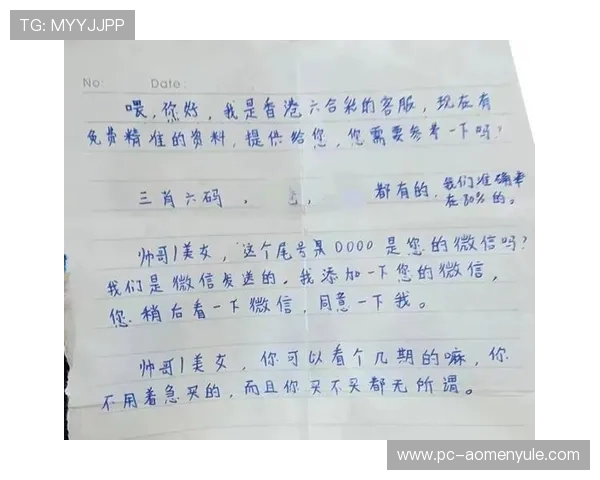 TG: MYYJJPP
No: Date:
喂，你好，我是香港六合彩的客服，现在有
免费精准的资料，提供给您，您需要参考一下吗？
三肖六码， ， 都有的，我们准确率
在80%的。
帅哥/美女，这个尾号是0000是您的微信吗？
我们是微信发送的，我添加一下您的微信，
您稍后看一下微信，同意一下我。
帅哥/美女，你可以看个几期的嘛，你
不用着急买的，而且你买不买都无所谓。
https://www.pc-aomenyule.com